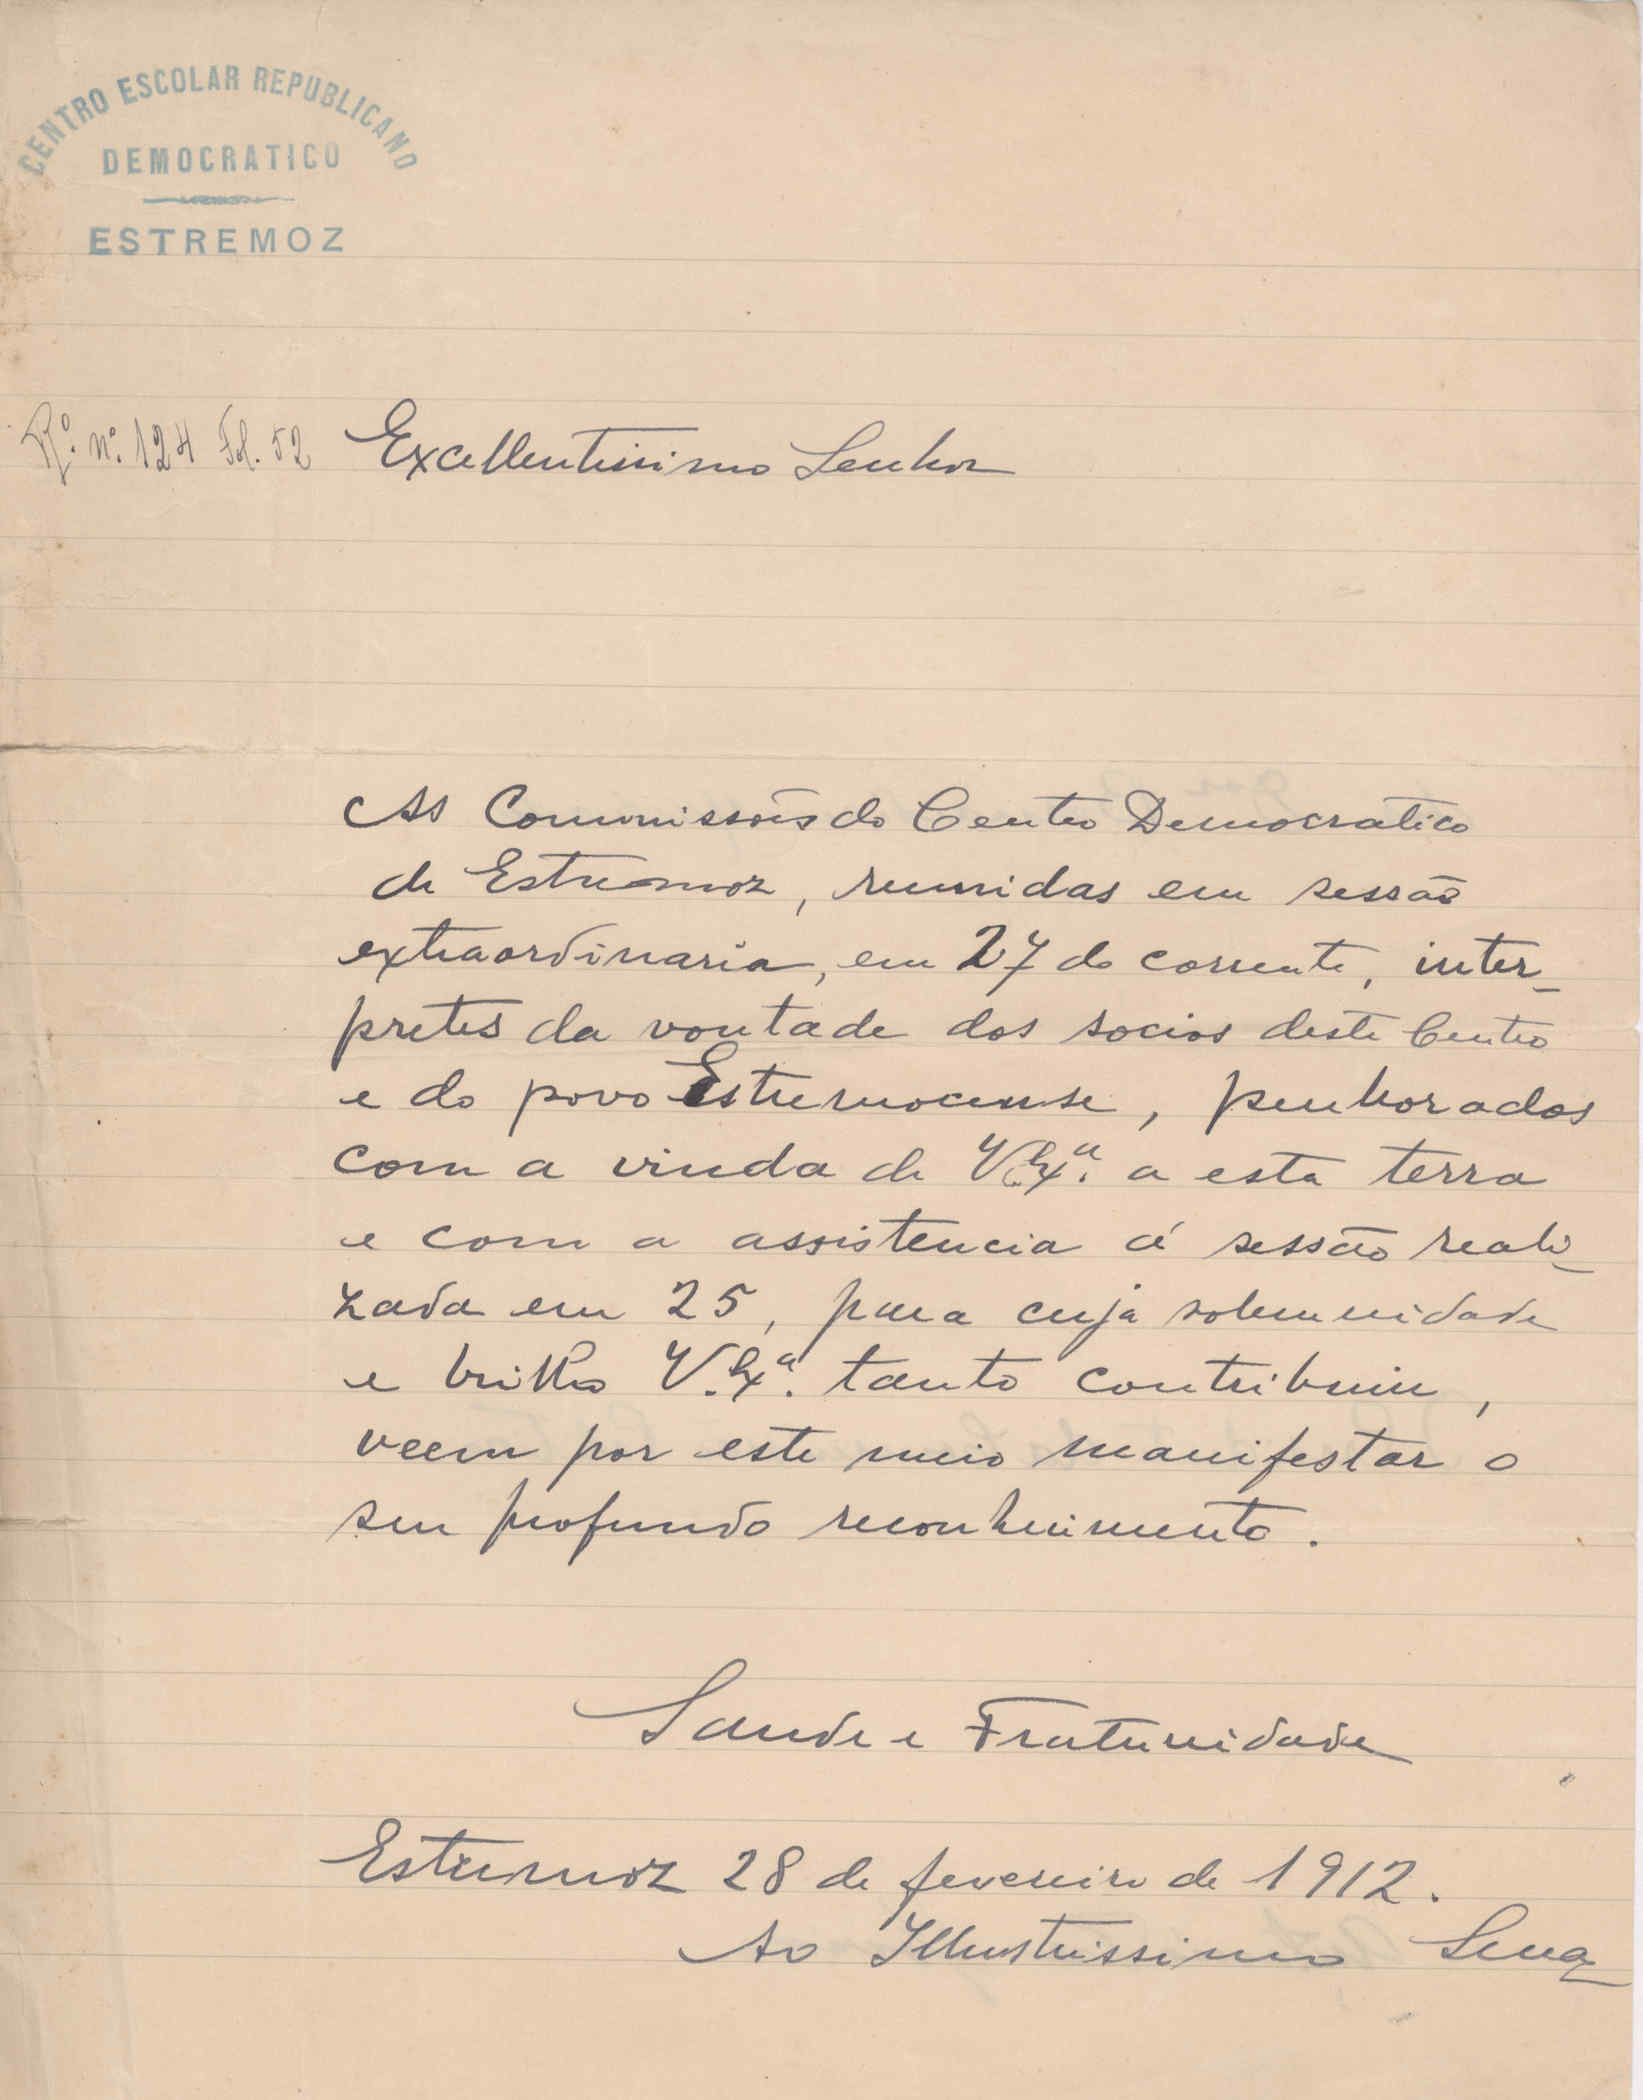 CENTRO ESCOLAR REPUBLICANO
DEMOCRATICO
ESTREMOZ
R.º n.º 124 Fol. 52
Excellentissimo Senhor
As Commissões do Centro Democratico
de Estremoz, reunidas em sessão
extraordinaria, em 27 do corrente, inter-
pretes da vontade dos socios deste Centro
e do povo Estremocense, penhorados
com a vinda de V. Ex.ª a esta terra
e com a assistencia á sessão reali-
zada em 25, para cuja solemnidade
e brilho V. Ex.ª tanto contribuiu,
veem por este meio manifestar o
seu profundo reconhecimento.
Saude e Fraternidade
Estremoz 28 de fevereiro de 1912.
Ao Illustrissimo Sena